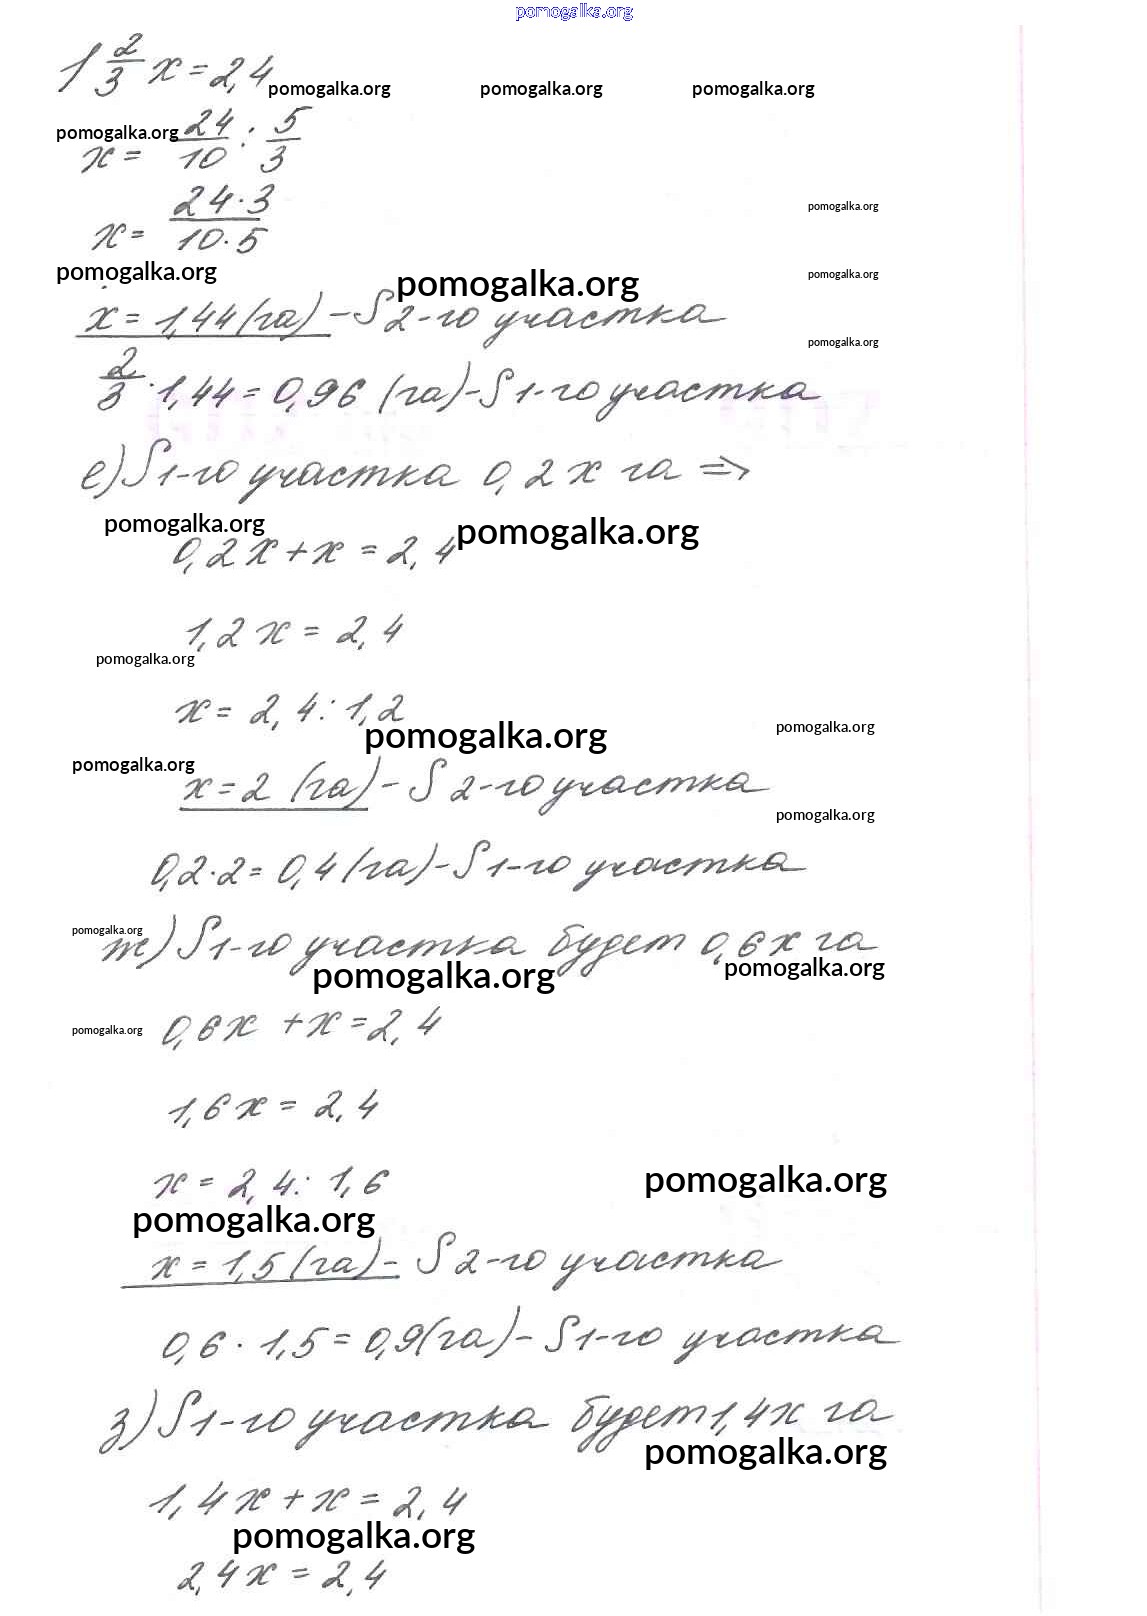 pomogalka.org
1 2/3 x = 2,4
pomogalka.org pomogalka.org pomogalka.org
pomogalka.org
x = 24/10 : 5/3
pomogalka.org
x = 24·3/10·5
pomogalka.org pomogalka.org pomogalka.org
x = 1,44 (га) – S 2-го участка
pomogalka.org
2/3 · 1,44 = 0,96 (га) – S 1-го участка
е) S 1-го участка 0,2x га ⇒
pomogalka.org pomogalka.org
0,2x + x = 2,4
1,2x = 2,4
pomogalka.org
x = 2,4 : 1,2
pomogalka.org pomogalka.org
pomogalka.org
x = 2 (га) – S 2-го участка
pomogalka.org
0,2 · 2 = 0,4 (га) – S 1-го участка
pomogalka.org
ж) S 1-го участка будет 0,6x га
pomogalka.org pomogalka.org
pomogalka.org
0,6x + x = 2,4
1,6x = 2,4
x = 2,4 : 1,6
pomogalka.org
pomogalka.org
x = 1,5 (га) – S 2-го участка
0,6 · 1,5 = 0,9 (га) – S 1-го участка
з) S 1-го участка будет 1,4x га
pomogalka.org
1,4x + x = 2,4
pomogalka.org
2,4x = 2,4